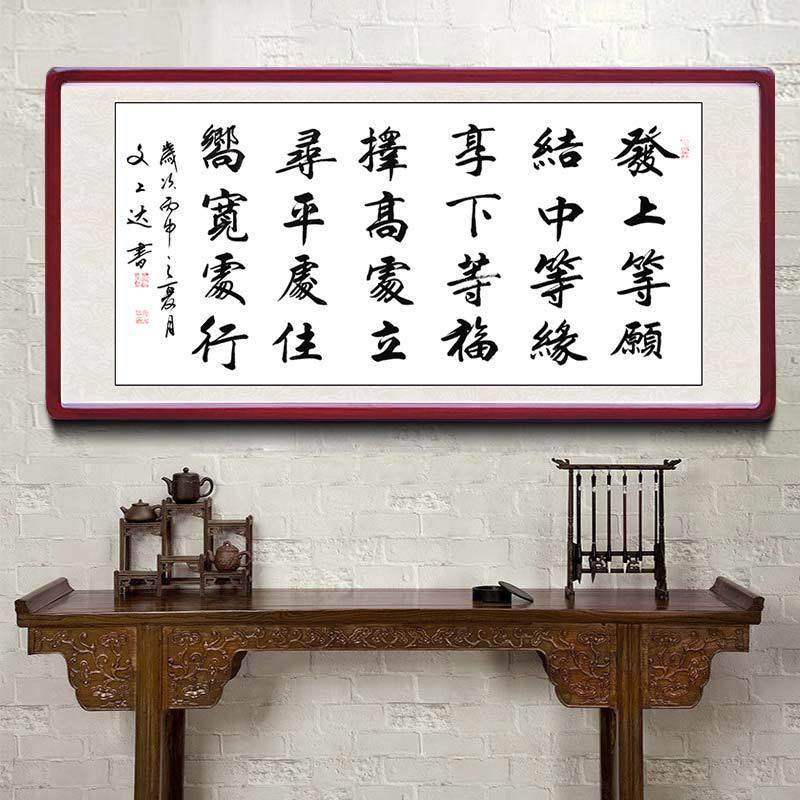 發上等願
結中等緣
享下等福
擇高處立
尋平處住
嚮寬處行
歲次丙申之夏月
文达書